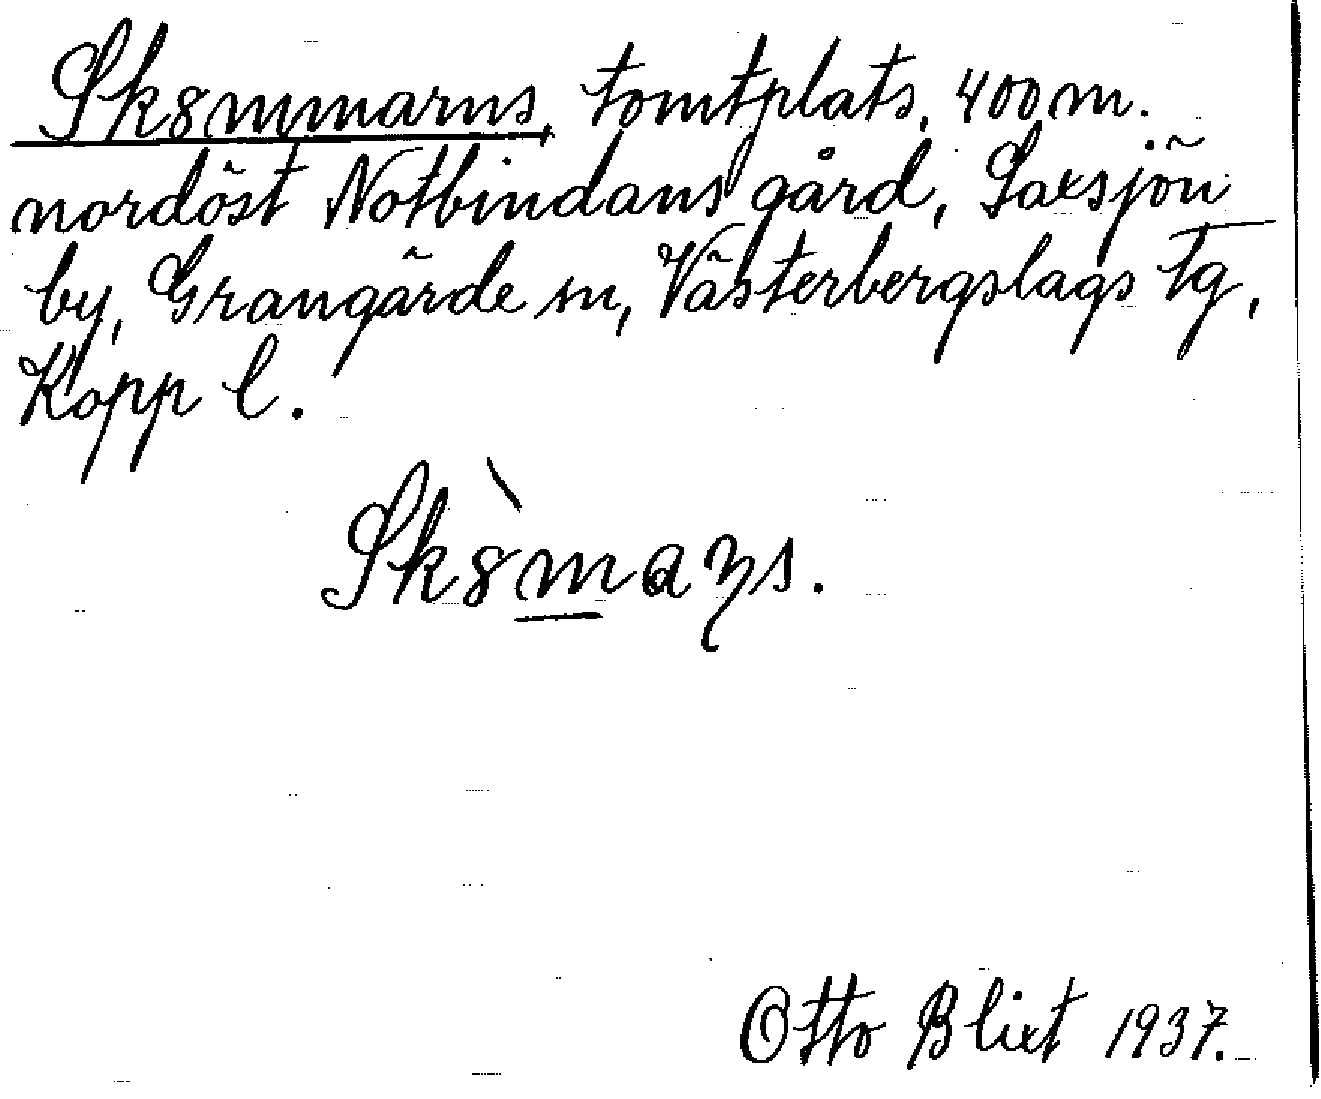 Sk8mmarns, tomtplats, 400 m.
nordöst Notbindans gård, Saxsjön
by, Grangärde sn, Västerbergslags tg,
Kopp l.
Sk8̀m̲ aɀs.
Otto Blixt 1937.